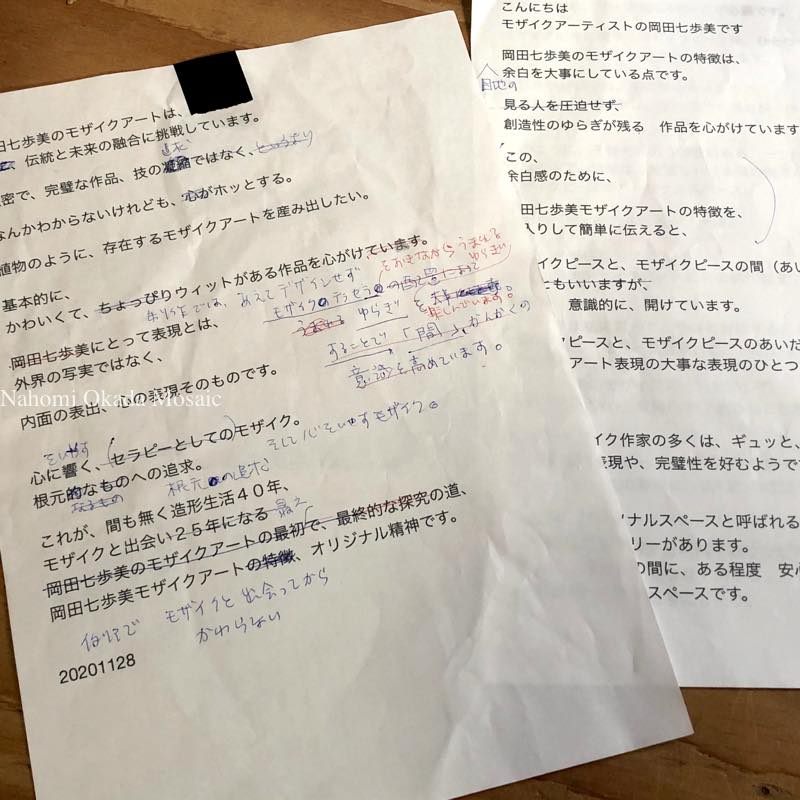 岡田七歩美のモザイクアートは、
伝統と未来の融合に挑戦しています。
追求
密で、完璧な作品、技の凝縮ではなく、というより
なんかわからないけれども、心がホッとする。
植物のように、存在するモザイクアートを産み出したい。
基本的に、
かわいくて、ちょっぴりウィットがある作品を心がけています。
あえてデザインせず
モザイクのテッセラの配置によって
をおきながらうまれる
ゆらぎ
ゆらぎを
楽しんでいます。
することで「間」、なんかくの
意識を高めています。
岡田七歩美にとって表現とは、
外界の写実ではなく、
内面の表出、心の表現そのものです。
Nahomi Okada Mosaic
心に響く、(セラピーとしての)モザイク。
そして心をいやすモザイク。
根元的なものへの追求。
なるもの
根元の追求
これが、間も無く造形生活40年、
モザイクと出会い25年になる
岡田七歩美のモザイクアートの最初で、最終的な探究の道、
岡田七歩美モザイクアートの特徴、オリジナル精神です。
モザイクと出会ってから
かわらない
20201128
こんにちは
モザイクアーティストの岡田七歩美です
岡田七歩美のモザイクアートの特徴は、
余白を大事にしている点です。
目地の
見る人を圧迫せず、
創造性のゆらぎが残る 作品を心がけています
この、
余白感のために、
田七歩美モザイクアートの特徴を、
入りして簡単に伝えると、
イクピースと、モザイクピースの間（あい
ともいいますが、
意識的に、開けています。
クピースと、モザイクピースのあいだ
アート表現の大事な表現のひとつ
イク作家の多くは、ギュッと、
表現や、完璧性を好むようで
ナルスペースと呼ばれる
リーがあります。
の間に、ある程度 安心
スペースです。